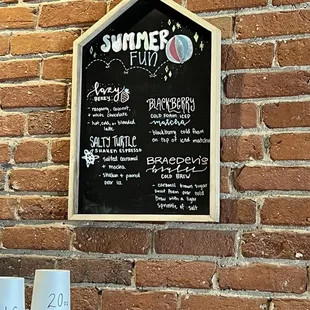 SUMMER
FUN
hazy
BERRY
- raspberry, coconut,
white chocolate
- hot, iced, or blended
latte
SALTY TURTLE
SHAKEN ESPRESSO
- salted caramel
+ mocha
- shaken + poured
over ice
BLACKBERRY
COLD FOAM ICED
MATCHA
- blackberry cold foam
on top of iced matcha
BRAEDEN'S
brûlée
COLD BREW
- caramel brown sugar
sweet foam over cold
brew with a light
sprinkle of salt
20oz